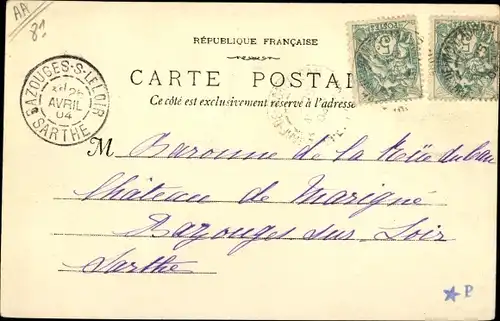 AA
81
RÉPUBLIQUE FRANÇAISE
CARTE POSTA
Ce côté est exclusivement réservé à l'adresse
BAZOUGES-S-LE LOIR
AVRIL
04
SARTHE
M Baronne de la
Château de Marigné
Bazouges sur Loir
Sarthe
P